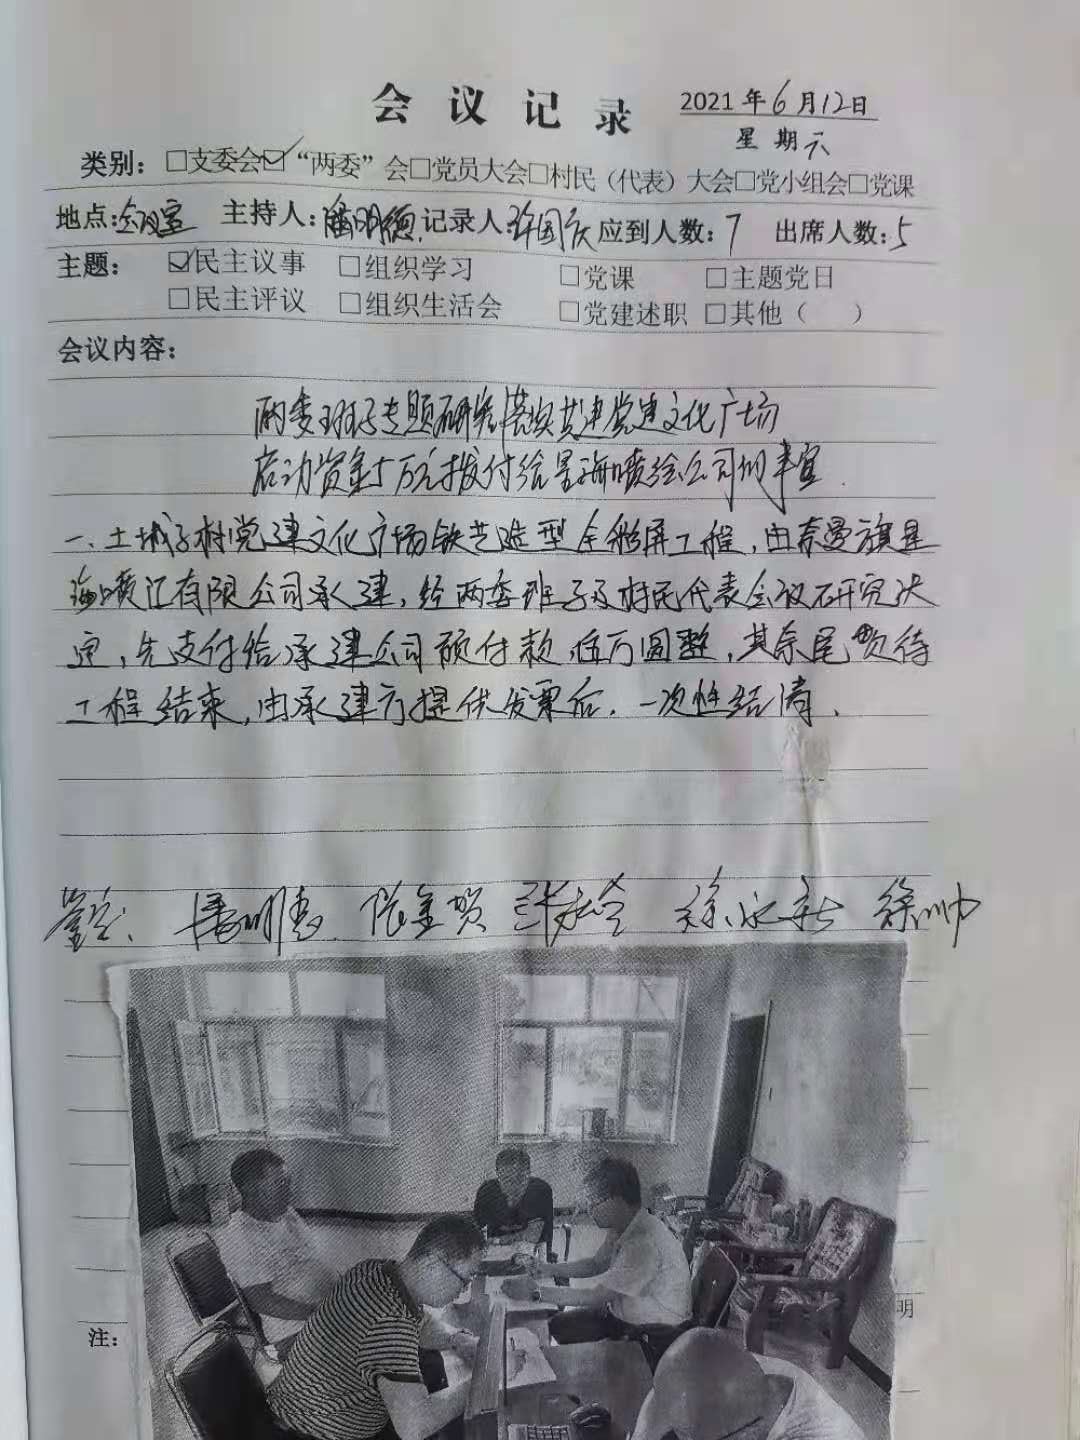 会议记录
2021年6月12日
星期六
类别：□支委会☑“两委”会□党员大会□村民（代表）大会□党小组会□党课
地点：会议室 主持人：潘明德 记录人：许国庆 应到人数：7 出席人数：5
主题：☑民主议事 □组织学习 □党课 □主题党日
□民主评议 □组织生活会 □党建述职 □其他（ ）
会议内容：
两委班子专题研究 共建党建文化广场
启动资金5万元拨付给星海喷绘公司的事宜
一、土城子村党建文化广场铁艺造型全彩屏工程，由奈曼旗星
海喷汇有限公司承建，经两委班子及村民代表会议研究决
定，先支付给承建公司预付款伍万圆整，其余尾费待
工程结束，由承建方提供发票后，一次性结清．
签字：潘明德 徐永新 徐帅
注：
明